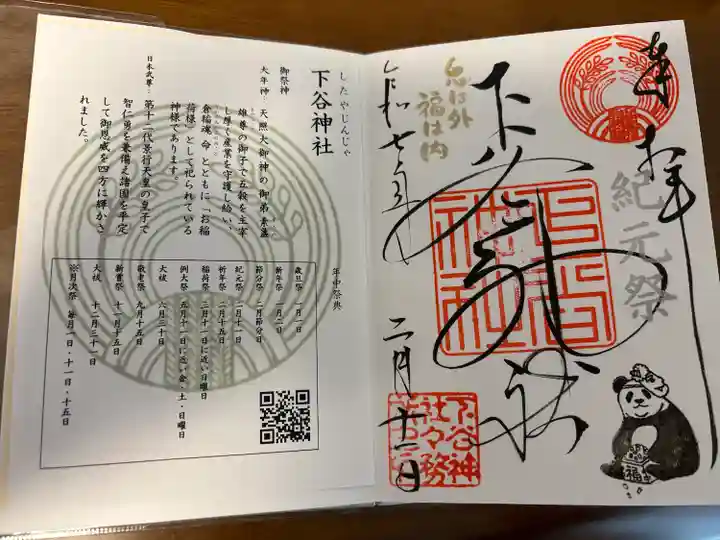 したやじんじゃ
下谷神社
御祭神
大年神：天照大御神の御弟素盞
雄尊の御子で五穀を主宰
し厚く産業を守護し給い、
倉稲魂命とともに「お稲
荷様」として祀られている
神様であります。
日本武尊：第十二代景行天皇の皇子で
智仁勇を兼備え諸国を平定
して御恩威を四方に輝かさ
れました。
年中祭典
歳旦祭 一月一日
新年祭 一月二日
節分祭 二月節分日
紀元祭 二月十一日
祈年祭 二月十五日
稲荷祭 三月十一日に近い日曜日
例大祭 五月十一日に近い金・土・日曜日
大祓 六月三十日
敬老祭 九月十五日
新嘗祭 十一月十五日
大祓 十二月三十一日
※月次祭 毎月一日・十一日・十五日
奉拝
紀元祭
下谷神社
鬼は外
福は内
令和七年
二月十一日
下谷神
社々務
所之印
福